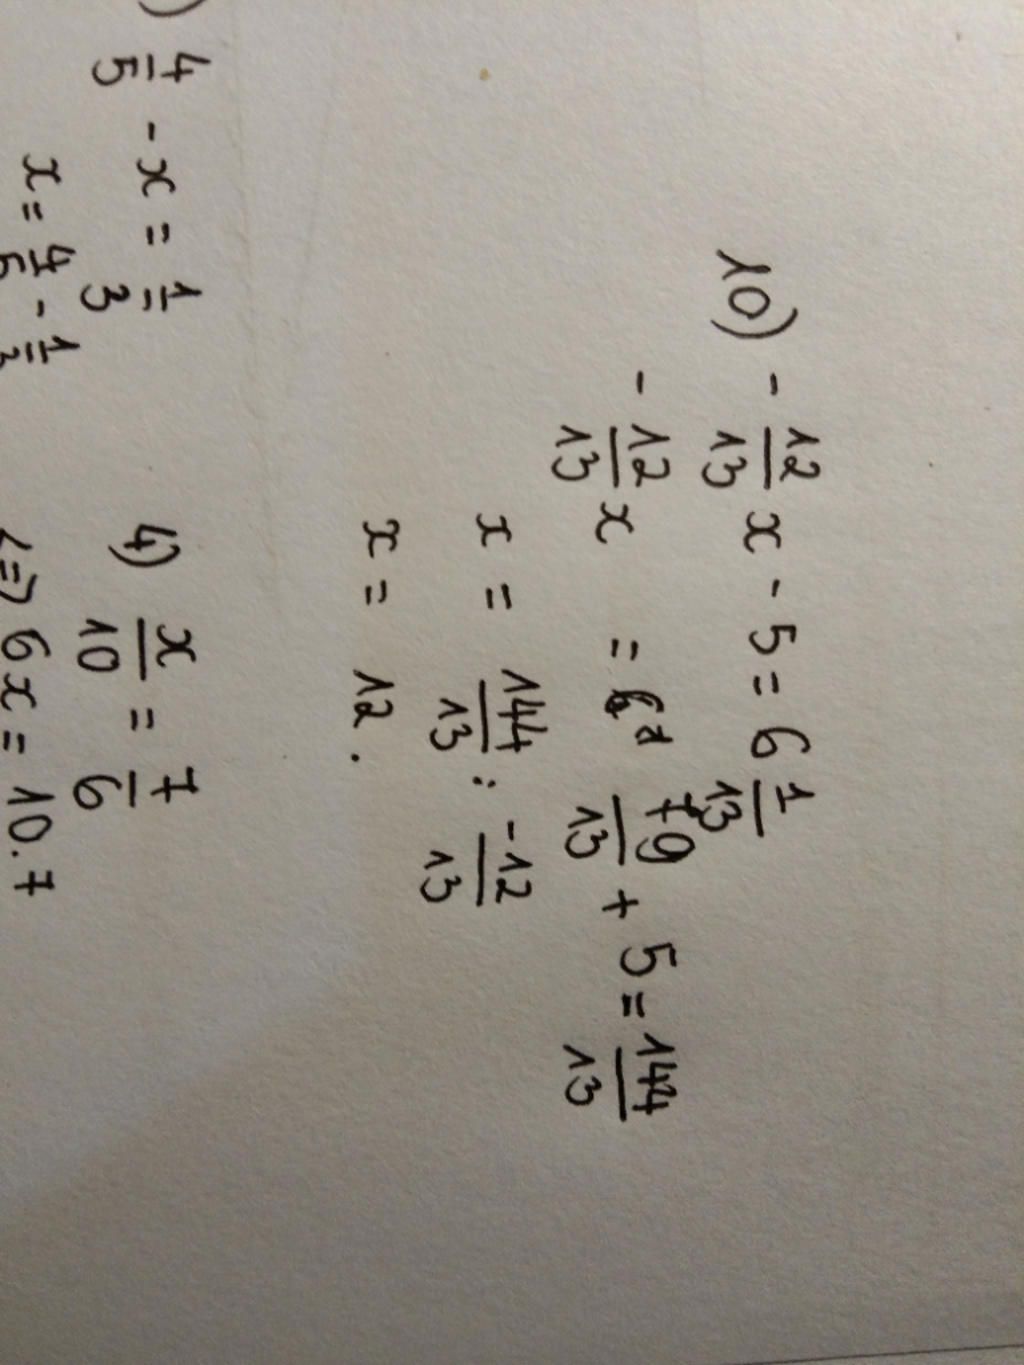 10) - 12/13 x - 5 = 6 1/13
- 12/13 x = 79/13 + 5 = 144/13
x = 144/13 : -12/13
x = 12.
) 4/5 - x = 1/3
x = 4/5 - 1/3
4) x/10 = 7/6
<=> 6x = 10.7